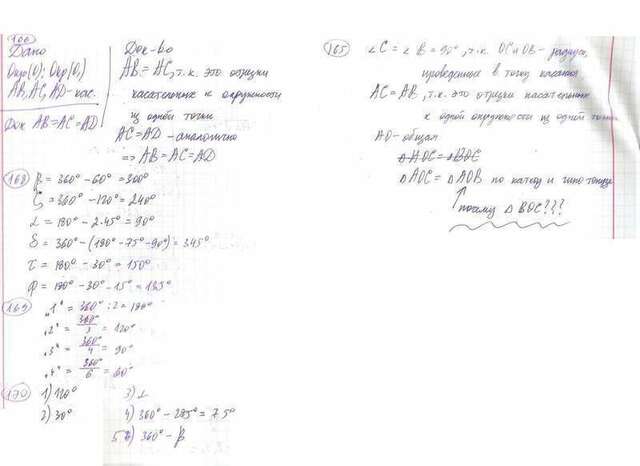 166
Дано
Окр(O); Окр(O₁)
AB, AC, AD - кас.
Док AB=AC=AD
Док-во
AB=AC, т.к. это отрезки
касательных к окружности
из одной точки
AC=AD - аналогично
=> AB=AC=AD
168
β = 360° - 60° = 300°
= 360° - 120° = 240°
α = 180° - 2·45° = 90°
δ = 360° - (180° - 75° - 90°) = 345°
τ = 180° - 30° = 150°
φ = 180° - 30° - 15° = 135°
169
"1" = 360° : 2 = 180°
"2" = 360°/3 = 120°
"3" = 360°/4 = 90°
"4" = 360°/6 = 60°
170
1) 120°
2) 30°
3) α
4) 360° - 285° = 75°
5) 360° - β
165
∠C = ∠B = 90°, т.к. OC и OB - радиусы,
проведенные в точку касания
AC = AB, т.к. это отрезки касательных
к одной окружности из одной точки
AO - общая
△AOC = △BOC
△AOC = △AOB по катету и гипотенузе
почему △BOC???